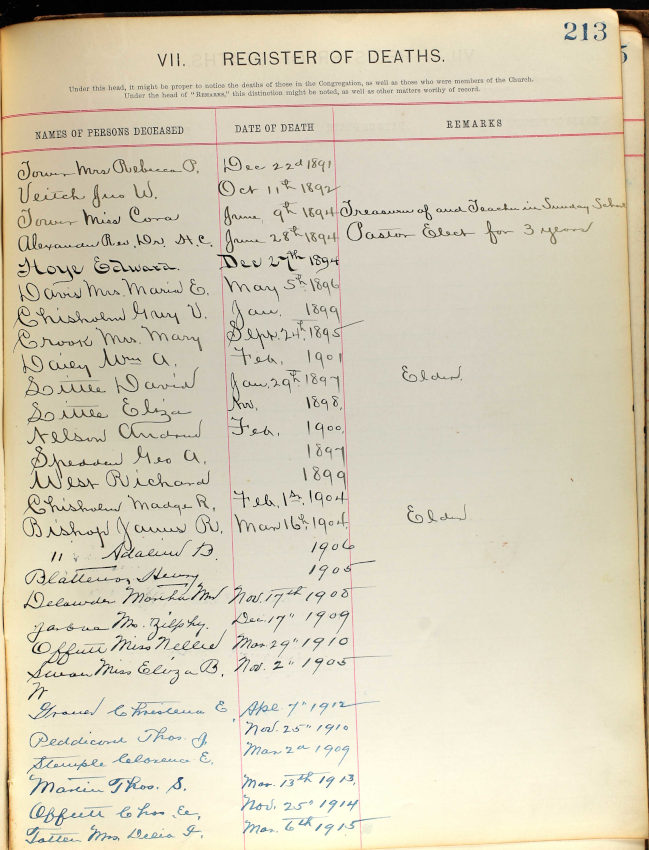 213
VII. REGISTER OF DEATHS.
Under this head, it might be proper to notice the deaths of those in the Congregation, as well as those who were members of the Church.
Under the head of "REMARKS," this distinction might be noted, as well as other matters worthy of record.
NAMES OF PERSONS DECEASED DATE OF DEATH REMARKS
Tower Mrs Rebecca P. Dec 22d 1891
Veitch Jno W. Oct 11th 1892
Tower Miss Cora June 9th 1894 Treasurer of and Teacher in Sunday School
Alexander Rev. Dr. H. C. June 28th 1894 Pastor Elect for 3 years
Hoye Edward. Dec 27th 1894
Davis Mrs. Maria E. May 5th 1896
Chisholm Guy V. Jan. 1899
Crook Mrs. Mary Sept. 24th 1895
Dailey Wm A. Feb. 1901
Little David Jan. 29th 1897 Elder.
Little Eliza Nov. 1898.
Nelson Andrew Feb. 1900.
Spedden Geo A. 1897
West Richard 1899
Chisholm Madge R. Feb. 1st 1904
Bishop James R. Mar 16th, 1904. Elder
" Adaline B. 1906
Henry 1905
Delawder Martha Mrs Nov. 17th 1908
Mrs. Zilphy. Dec. 17" 1909
Offutt Miss Nellie Mar. 29" 1910
Swan Miss Eliza B. Nov. 2" 1905
W
Christena E. Apl. 7" 1912
Peddicord Thos. J. Nov. 25" 1910
Stemple Clorence E. Mar 2d 1909
Martin Thos. S. Mar. 13th 1913.
Offutt Chas. E. Nov. 25" 1914
Totten Mrs. Delia F. Mar. 6th 1915